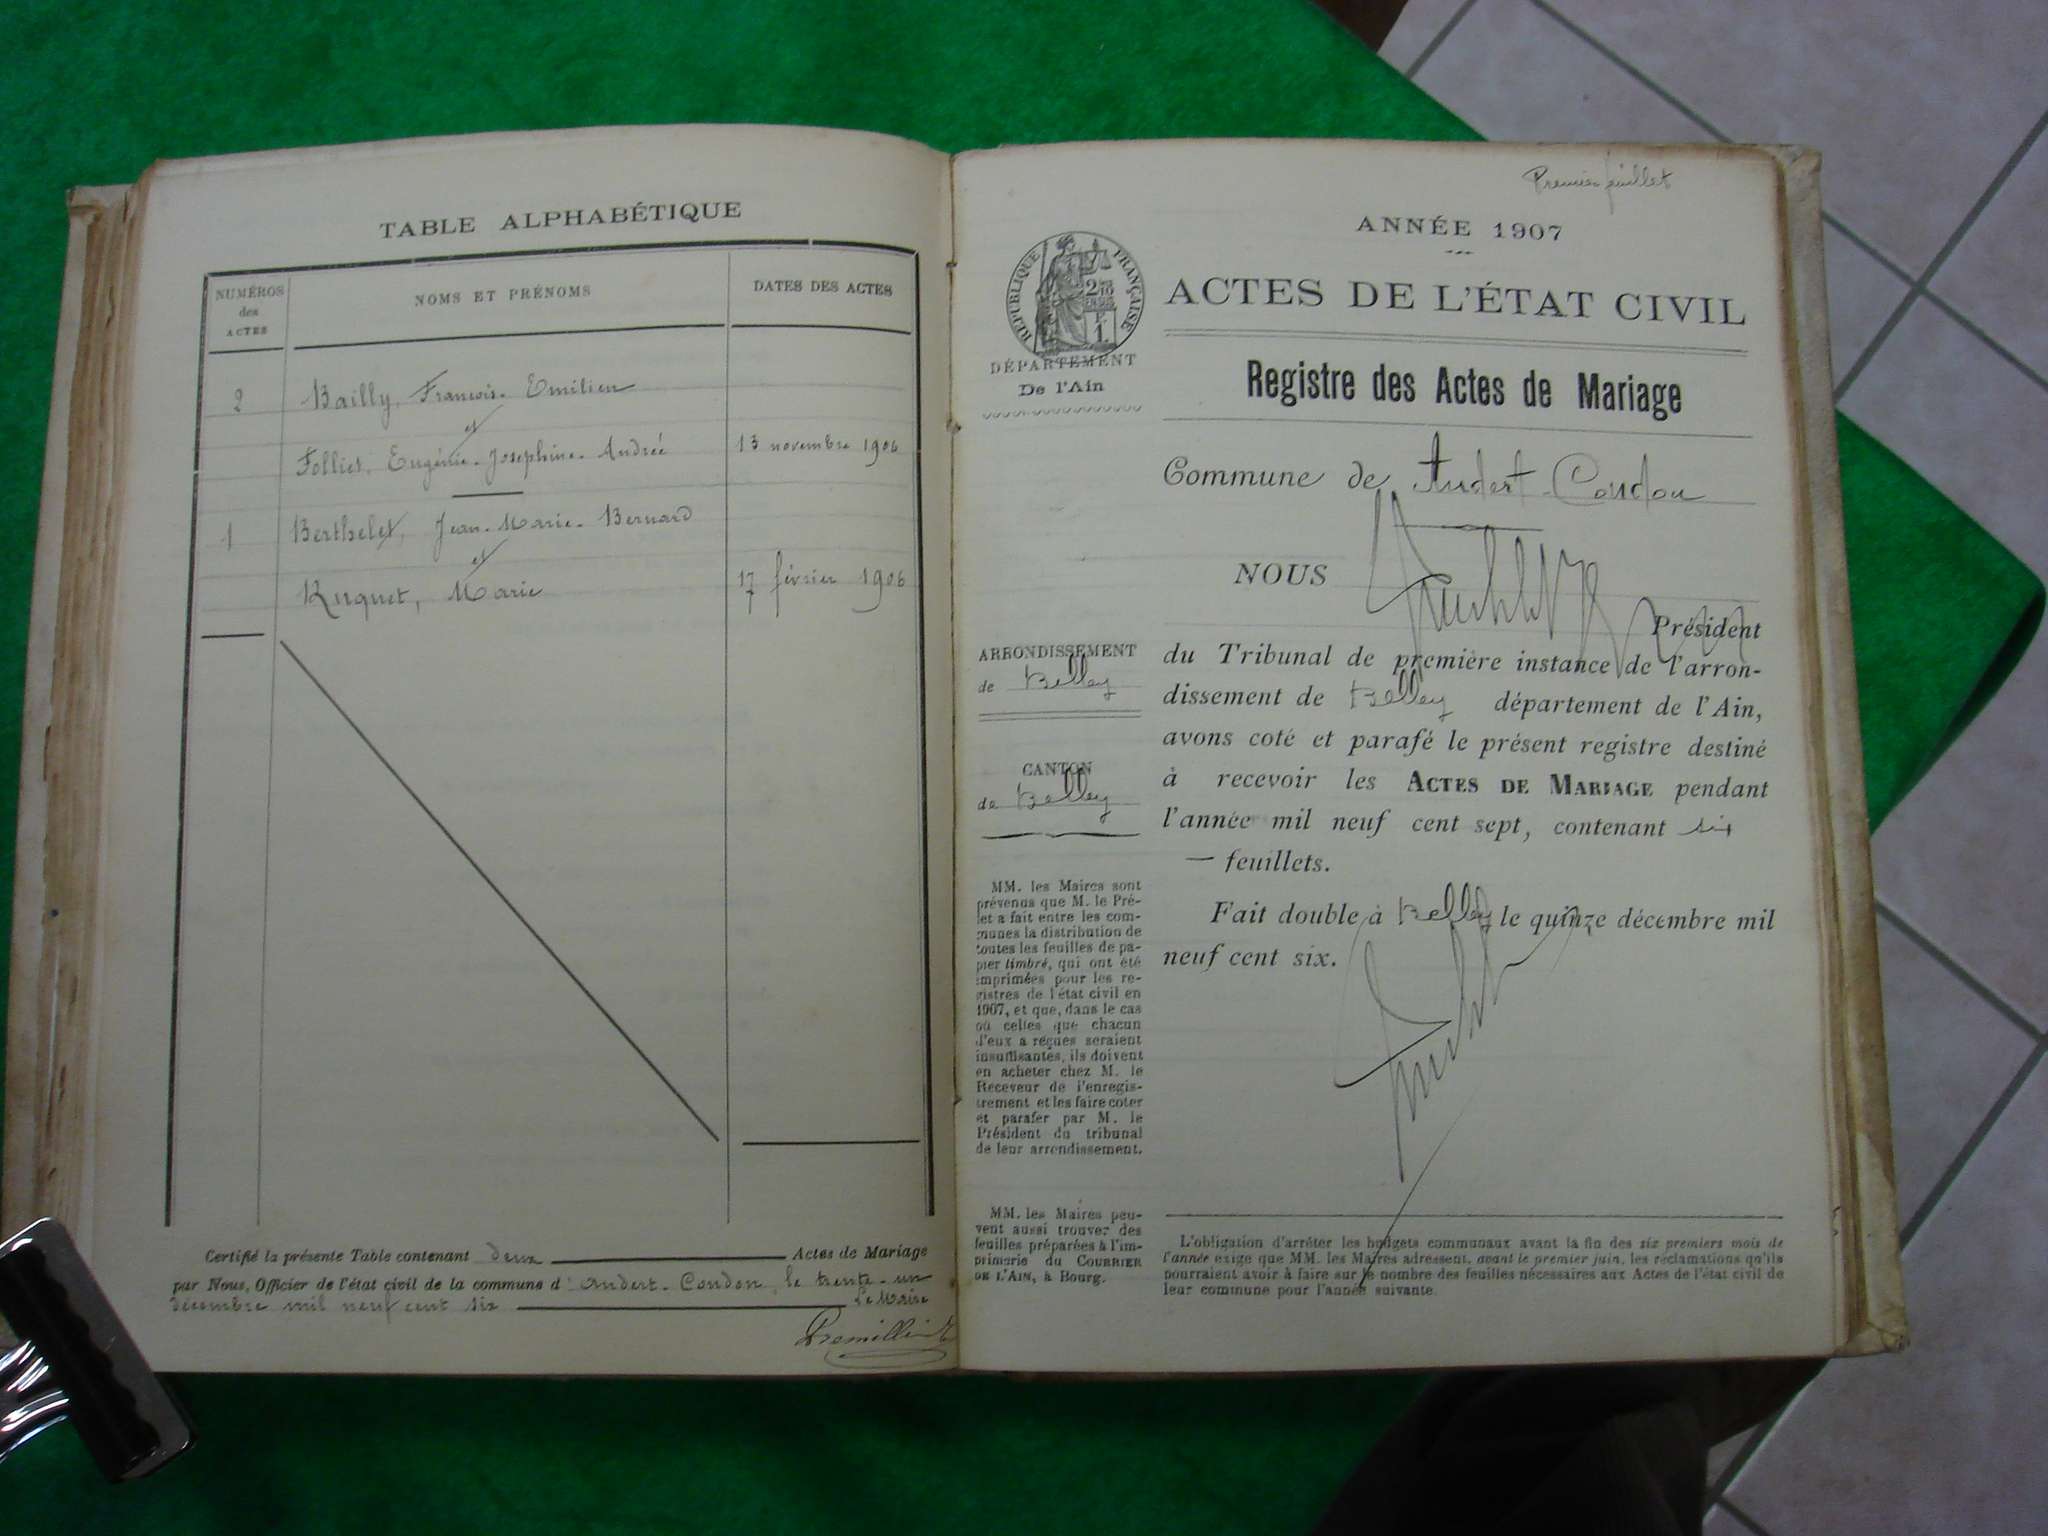 TABLE ALPHABÉTIQUE
NUMÉROS
des
ACTES
NOMS ET PRÉNOMS
DATES DES ACTES
2 Bailly, François-Emilien
et
Folliet, Eugénie-Joséphine-Andrée 13 novembre 1906
1 Berthelet, Jean-Marie-Bernard
et
Ruquet, Marie 17 février 1906
Certifié la présente Table contenant deux Actes de Mariage
par Nous, Officier de l'état civil de la commune d'Andert-Condon, le trente-un
décembre mil neuf cent six Le Maire
Premier feuillet
ANNÉE 1907
RÉPUBLIQUE FRANÇAISE
ACTES DE L'ÉTAT CIVIL
DÉPARTEMENT
De l'Ain
Registre des Actes de Mariage
Commune de Andert-Condon
NOUS
Président
ARRONDISSEMENT
de Belley
CANTON
de Belley
du Tribunal de première instance de l'arron-
dissement de Belley département de l'Ain,
avons coté et parafé le présent registre destiné
à recevoir les ACTES DE MARIAGE pendant
l'année mil neuf cent sept, contenant six
— feuillets.
Fait double à Belley le quinze décembre mil
neuf cent six.
MM. les Maires sont
prévenus que M. le Pré-
fet a fait entre les com-
munes la distribution de
toutes les feuilles de pa-
pier timbré, qui ont été
imprimées pour les re-
gistres de l'état civil en
1907, et que, dans le cas
où celles que chacun
d'eux a reçues seraient
insuffisantes, ils doivent
en acheter chez M. le
Receveur de l'enregis-
trement et les faire coter
et parafer par M. le
Président du tribunal
de leur arrondissement.
MM. les Maires peu-
vent aussi trouver des
feuilles préparées à l'im-
primerie du COURRIER
DE L'AIN, à Bourg.
L'obligation d'arrêter les budgets communaux avant la fin des six premiers mois de
l'année exige que MM. les Maires adressent, avant le premier juin, les réclamations qu'ils
pourraient avoir à faire sur le nombre des feuilles nécessaires aux Actes de l'état civil de
leur commune pour l'année suivante.